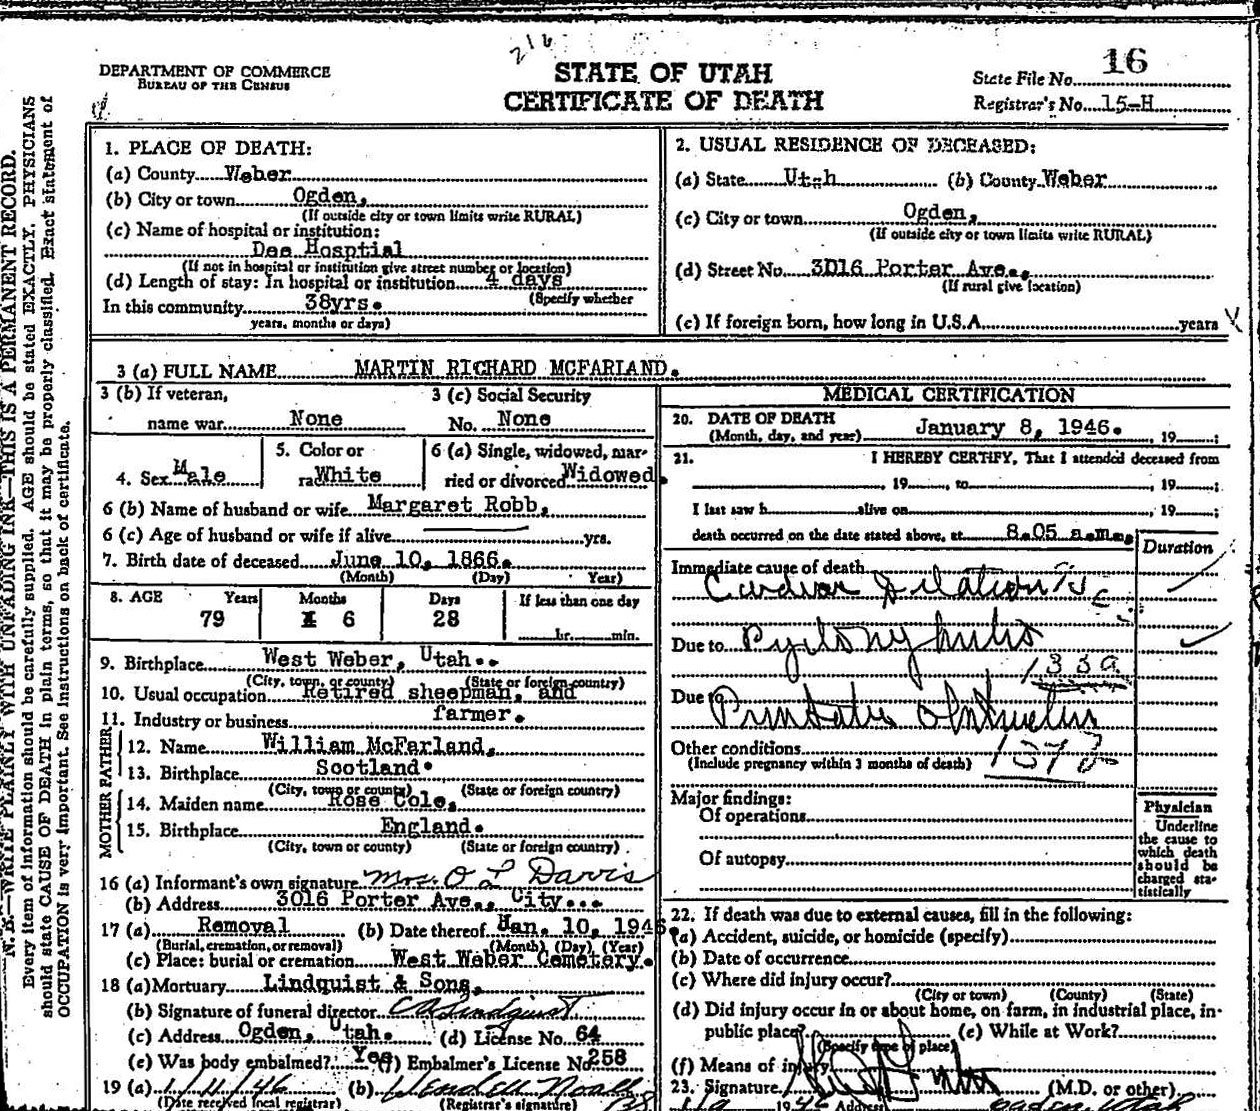 216
DEPARTMENT OF COMMERCE
BUREAU OF THE CENSUS
STATE OF UTAH
CERTIFICATE OF DEATH
State File No. 16
Registrar's No. 15-H
N. B.—WRITE PLAINLY WITH UNFADING INK—THIS IS A PERMANENT RECORD.
Every item of information should be carefully supplied. AGE should be stated EXACTLY. PHYSICIANS
should state CAUSE OF DEATH in plain terms, so that it may be properly classified. Exact statement of
OCCUPATION is very important. See instructions on back of certificate.
1. PLACE OF DEATH:
(a) County Weber
(b) City or town Ogden,
(If outside city or town limits write RURAL)
(c) Name of hospital or institution:
Dee Hosptial
(If not in hospital or institution give street number or location)
(d) Length of stay: In hospital or institution 4 days
(Specify whether
In this community 38yrs.
years, months or days)
2. USUAL RESIDENCE OF DECEASED:
(a) State Utah (b) County Weber
(c) City or town Ogden,
(If outside city or town limits write RURAL)
(d) Street No. 3016 Porter Ave.,
(If rural give location)
(e) If foreign born, how long in U.S.A. years
3 (a) FULL NAME MARTIN RICHARD MCFARLAND.
3 (b) If veteran, 3 (c) Social Security
name war. None No. None
4. Sex Male 5. Color or race White 6 (a) Single, widowed, married or divorced Widowed.
6 (b) Name of husband or wife Margaret Robb,
6 (c) Age of husband or wife if alive yrs.
7. Birth date of deceased June 10, 1866.
(Month) (Day) Year)
8. AGE Years Months Days If less than one day
79 6 28 hr. min.
9. Birthplace West Weber, Utah..
(City, town, or county) (State or foreign country)
10. Usual occupation Retired sheepman, and
11. Industry or business farmer.
FATHER
12. Name William McFarland,
13. Birthplace Scotland.
(City, town or county) (State or foreign country)
MOTHER
14. Maiden name Rose Cole,
15. Birthplace England.
(City, town or county) (State or foreign country)
16 (a) Informant's own signature Mrs. O L Davis
(b) Address 3016 Porter Ave., City...
17 (a) Removal (b) Date thereof Jan. 10, 1946.
(Burial, cremation, or removal) (Month) (Day) (Year)
(c) Place: burial or cremation West Weber Cemetery.
18 (a) Mortuary Lindquist & Sons,
(b) Signature of funeral director CA Lindquist
(c) Address Ogden, Utah. (d) License No. 64
(e) Was body embalmed? Yes (f) Embalmer's License No. 258
19 (a) 1/11/46 (b) Wendell Noall
(Date received local registrar) (Registrar's signature)
MEDICAL CERTIFICATION
20. DATE OF DEATH
(Month, day, and year) January 8, 1946. , 19 ;
21. I HEREBY CERTIFY, That I attended deceased from
, 19 , to , 19 ;
I last saw h alive on , 19 ;
death occurred on the date stated above, at 8.05 a.m.,
Duration
Immediate cause of death
Cardiac Dilation
Due to Pyelonephritis
133a
Due to
Prostatic obstruction
Other conditions 137b
(Include pregnancy within 3 months of death)
Major findings:
Of operations
Of autopsy
Physician
Underline
the cause to
which death
should be
charged sta-
tistically
22. If death was due to external causes, fill in the following:
(a) Accident, suicide, or homicide (specify)
(b) Date of occurrence
(c) Where did injury occur?
(City or town) (County) (State)
(d) Did injury occur in or about home, on farm, in industrial place, in-
public place? (e) While at Work?
(Specify type of place)
(f) Means of injury
23. Signature (M.D. or other)
1946 Address Ogden Utah